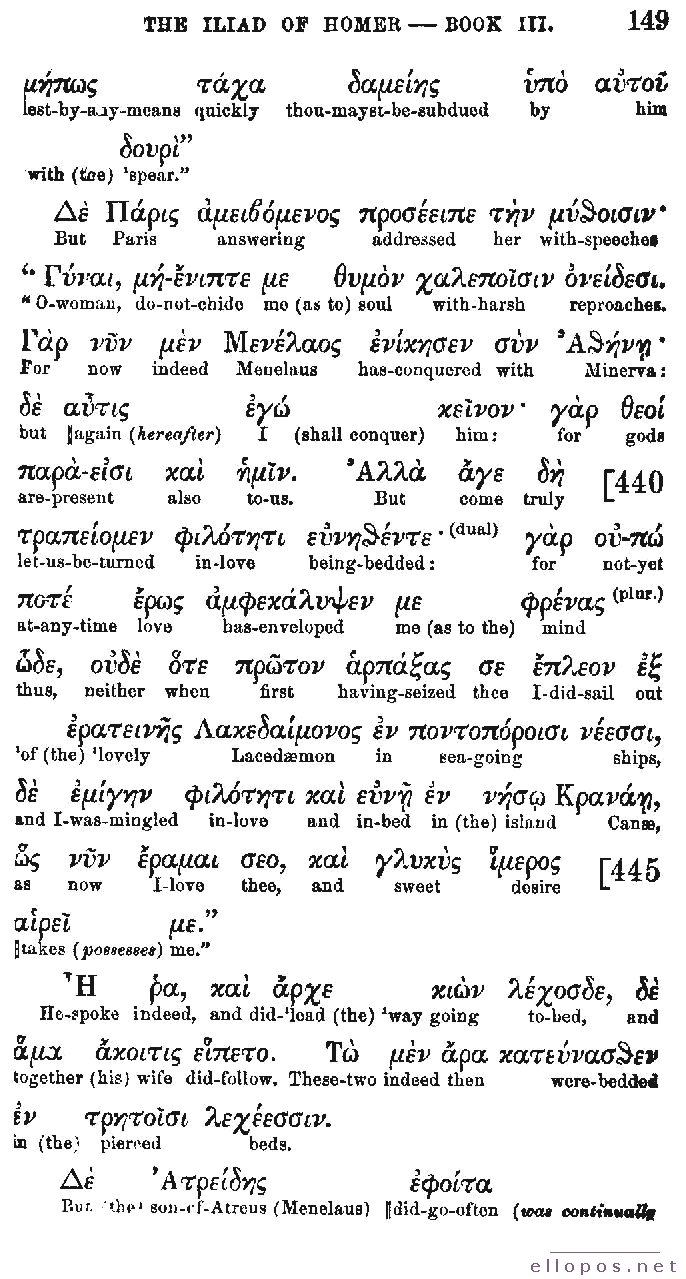 THE ILIAD OF HOMER — BOOK III. 149
μήπως τάχα δαμείης ὑπὸ αὐτοῦ
lest-by-any-means quickly thou-mayst-be-subdued by him
δουρὶ”
with (the) 'spear.”
Δὲ Πάρις ἀμειβόμενος προσέειπε τὴν μύθοισιν·
But Paris answering addressed her with-speeches
“Γύναι, μή-ἔνιπτε με θυμὸν χαλεποῖσιν ὀνείδεσι.
“O-woman, do-not-chide me (as to) soul with-harsh reproaches.
Γὰρ νῦν μὲν Μενέλαος ἐνίκησεν σὺν Ἀθήνῃ·
For now indeed Menelaus has-conquered with Minerva:
δὲ αὖτις ἐγώ κεῖνον· γάρ θεοί
but ‖again (hereafter) I (shall conquer) him: for gods
παρὰ-εἰσι καὶ ἡμῖν. Ἀλλὰ ἄγε δὴ [440
are-present also to-us. But come truly
τραπείομεν φιλότητι εὐνηθέντε·(dual) γὰρ οὐ-πώ
let-us-be-turned in-love being-bedded: for not-yet
ποτέ ἔρως ἀμφεκάλυψεν με φρένας (plur.)
at-any-time love has-enveloped me (as to the) mind
ὧδε, οὐδὲ ὅτε πρῶτον ἁρπάξας σε ἔπλεον ἐξ
thus, neither when first having-seized thee I-did-sail out
ἐρατεινῆς Λακεδαίμονος ἐν ποντοπόροισι νέεσσι,
'of (the) 'lovely Lacedæmon in sea-going ships,
δὲ ἐμίγην φιλότητι καὶ εὐνῇ ἐν νήσῳ Κρανάῃ,
and I-was-mingled in-love and in-bed in (the) island Canæ,
ὥς νῦν ἔραμαι σεο, καὶ γλυκὺς ἵμερος [445
as now I-love thee, and sweet desire
αἱρεῖ με.”
‖takes (possesses) me.”
Ἦ ῥα, καὶ ἄρχε κιὼν λέχοσδε, δὲ
He-spoke indeed, and did-'lead (the) 'way going to-bed, and
ἅμα ἄκοιτις εἵπετο. Τὼ μὲν ἄρα κατεύνασθεν
together (his) wife did-follow. These-two indeed then were-bedded
ἐν τρητοῖσι λεχέεσσιν.
in (the) pierced beds.
Δὲ Ἀτρείδης ἐφοίτα
But (the) son-of-Atreus (Menelaus) ‖did-go-often (was continually
ellopos.net